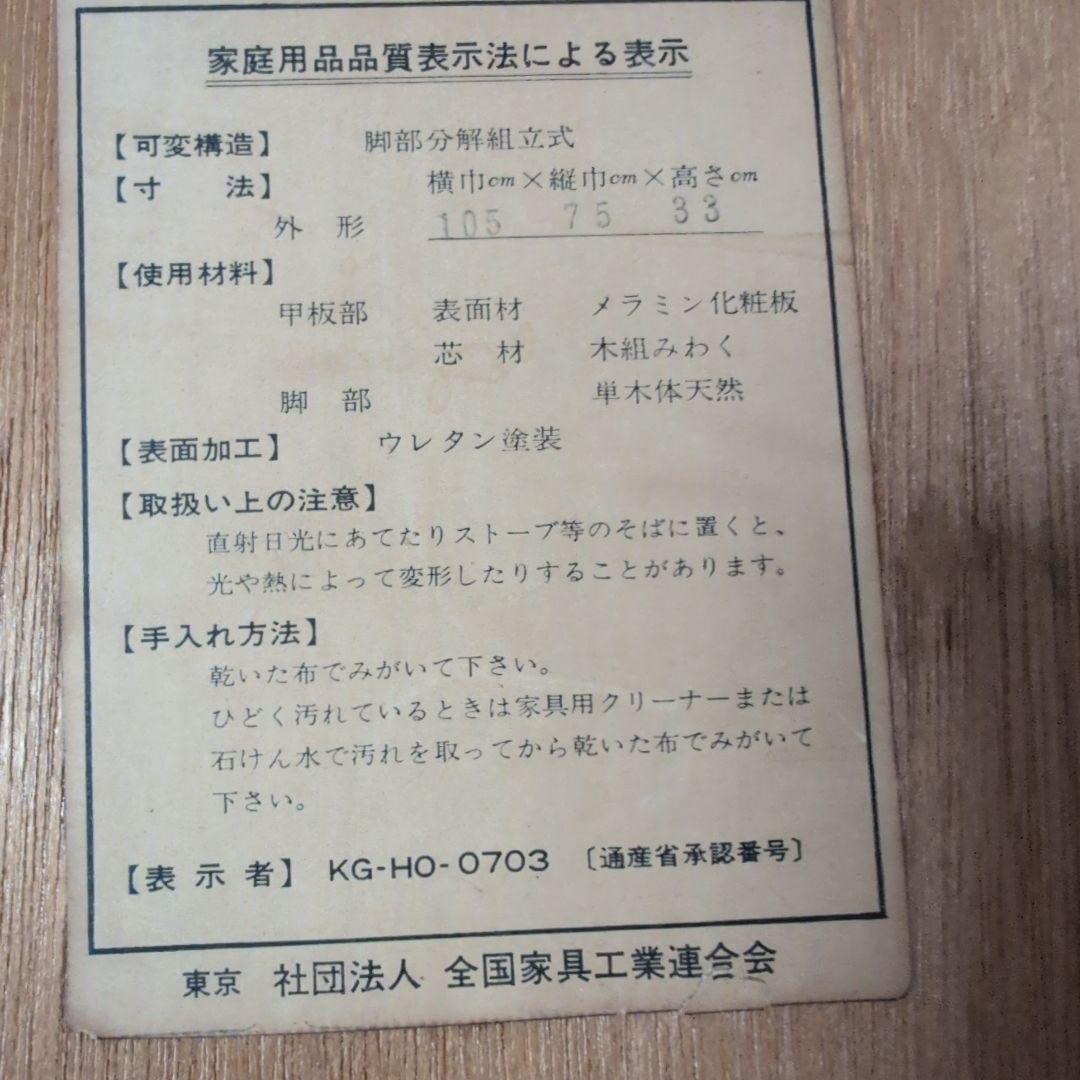 家庭用品品質表示法による表示
【可変構造】 脚部分解組立式
【寸 法】 横巾cm×縦巾cm×高さcm
外 形 105 75 33
【使用材料】
甲板部 表面材 メラミン化粧板
芯 材 木組みわく
脚 部 単木体天然
【表面加工】 ウレタン塗装
【取扱い上の注意】
直射日光にあてたりストーブ等のそばに置くと、
光や熱によって変形したりすることがあります。
【手入れ方法】
乾いた布でみがいて下さい。
ひどく汚れているときは家具用クリーナーまたは
石けん水で汚れを取ってから乾いた布でみがいて
下さい。
【表 示 者】 KG-HO-0703 〔通産省承認番号〕
東京 社団法人 全国家具工業連合会